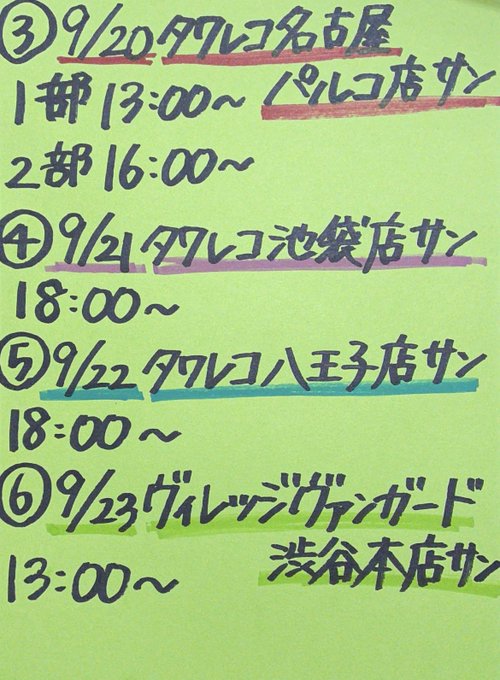 ③9/20タワレコ名古屋
パルコ店サン
1部13:00～
2部16:00～
④9/21タワレコ池袋店サン
18:00～
⑤9/22タワレコ八王子店サン
18:00～
⑥9/23ヴィレッジヴァンガード
渋谷本店サン
13:00～